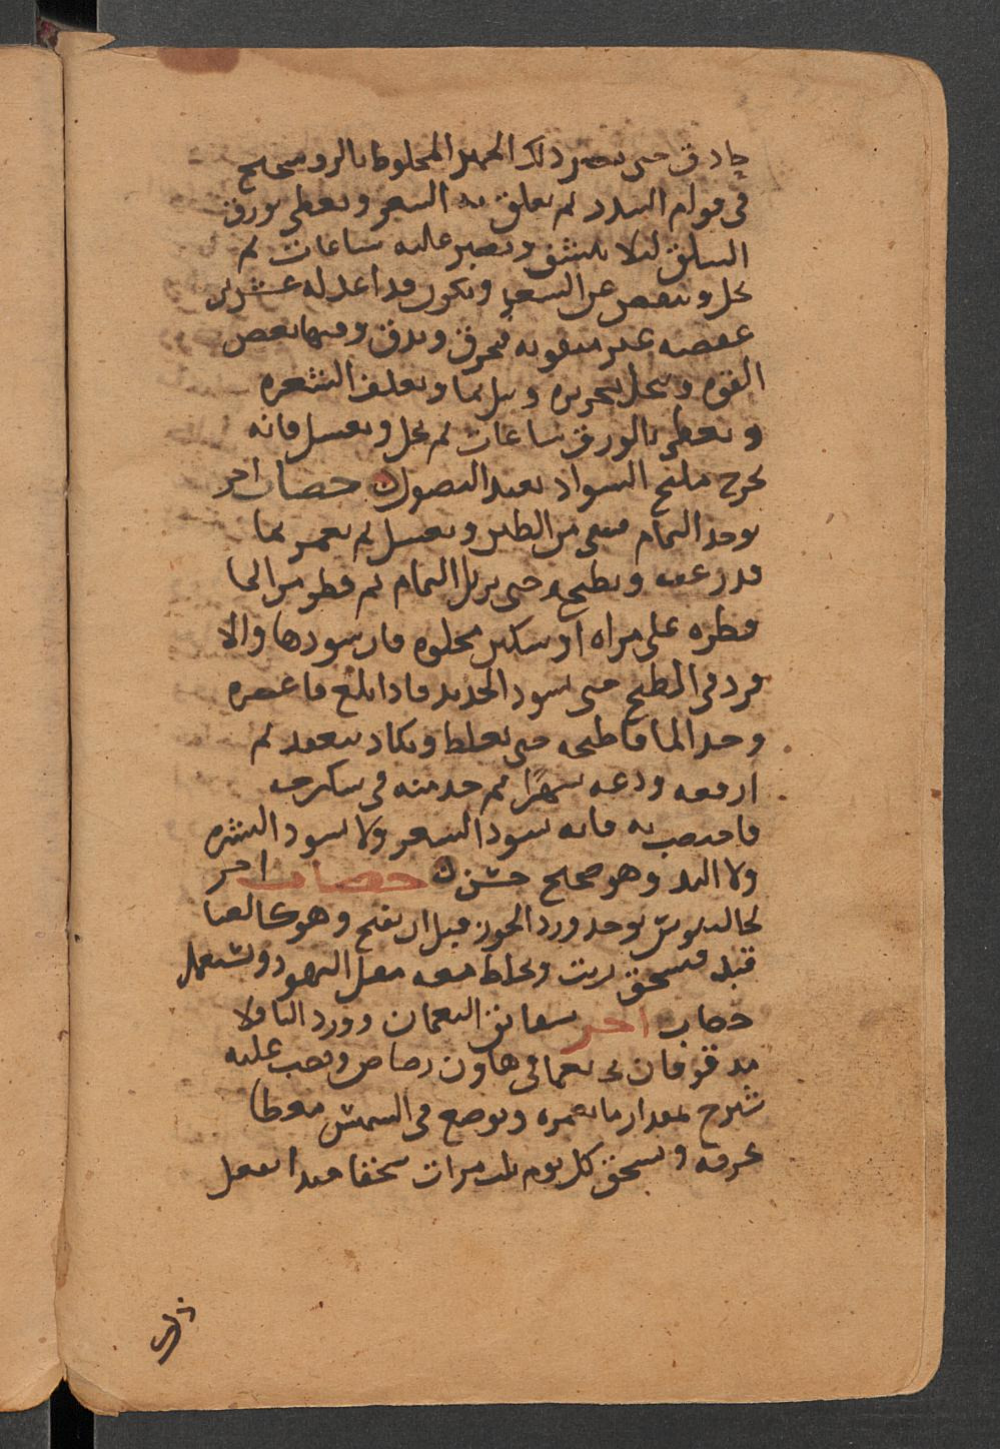 حاذق حتى يصير ذلك الخمير المخلوط بالروسختج
في قوام السدر ثم يغلف به الشعر ويغطى بورق
السلق لئلا ينشف ويصبر عليه ساعات ثم
يحل وينفض عن الشعر ويكون قد اعد له عشرين
عفصه غير مثقوبه فيحرق ويدق وفيها بعض
القوه وينخل بحريره ويبل بما ويغلف الشعره
ويغطى بالورق ساعات ثم يحل ويغسل فانه
يخرج مليح السواد بعيد النصول خضاب اخر
يوخذ الثمام فينقى من الطين ويغسل ثم يغمر بما
قدر عفه ويطبخ حتى يزبل الثمام ثم قطر من الما
قطره على مراه او سكين مجلوه فان سودها والا
فرد في الطبخ حتى يسود الحديد فاذا بلغ فاعصره
وخذ الما فاطبخه حتى يغلظ ويكاد ينعقد ثم
ارفعه ودعه شهرا ثم خذ منه في سكرجه
فاختضب به فانه يسود الشعر ولا يسود البشره
ولا اليد وهو صحيح حسن خضاب اخر
لجالينوس يوخذ ورد الجوز قبل ان يفتح وهو كالعنا
قبله فيسحق بزيت ويخلط معه مقل اليهود ويستعمل
خضاب اخر شقائق النعمان وورد الباقلا
يدقوقان نعما في هاون رصاص ويصب عليه
شيرج بمقدار ما يغمره ويوضع في الشمس مغطا
بخرقه ويسحق كل يوم ثلث مرات سحقا جيدا يفعل